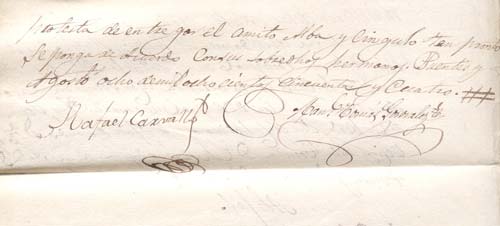 protesta de entregar el amito Alva y Cingulo tan pronto
Se ponga de acuerdo con sus sobredho hermanos. Puente y
Agosto ocho de mil ocho cientos cincuenta y Cuatro.
Rafael Carvallo
Man.l Tomas Gonzalez